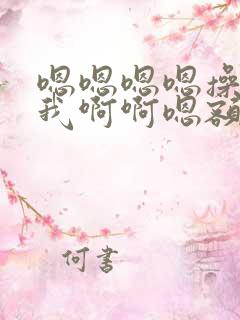 嗯嗯嗯嗯操
我啊啊嗯额
何書